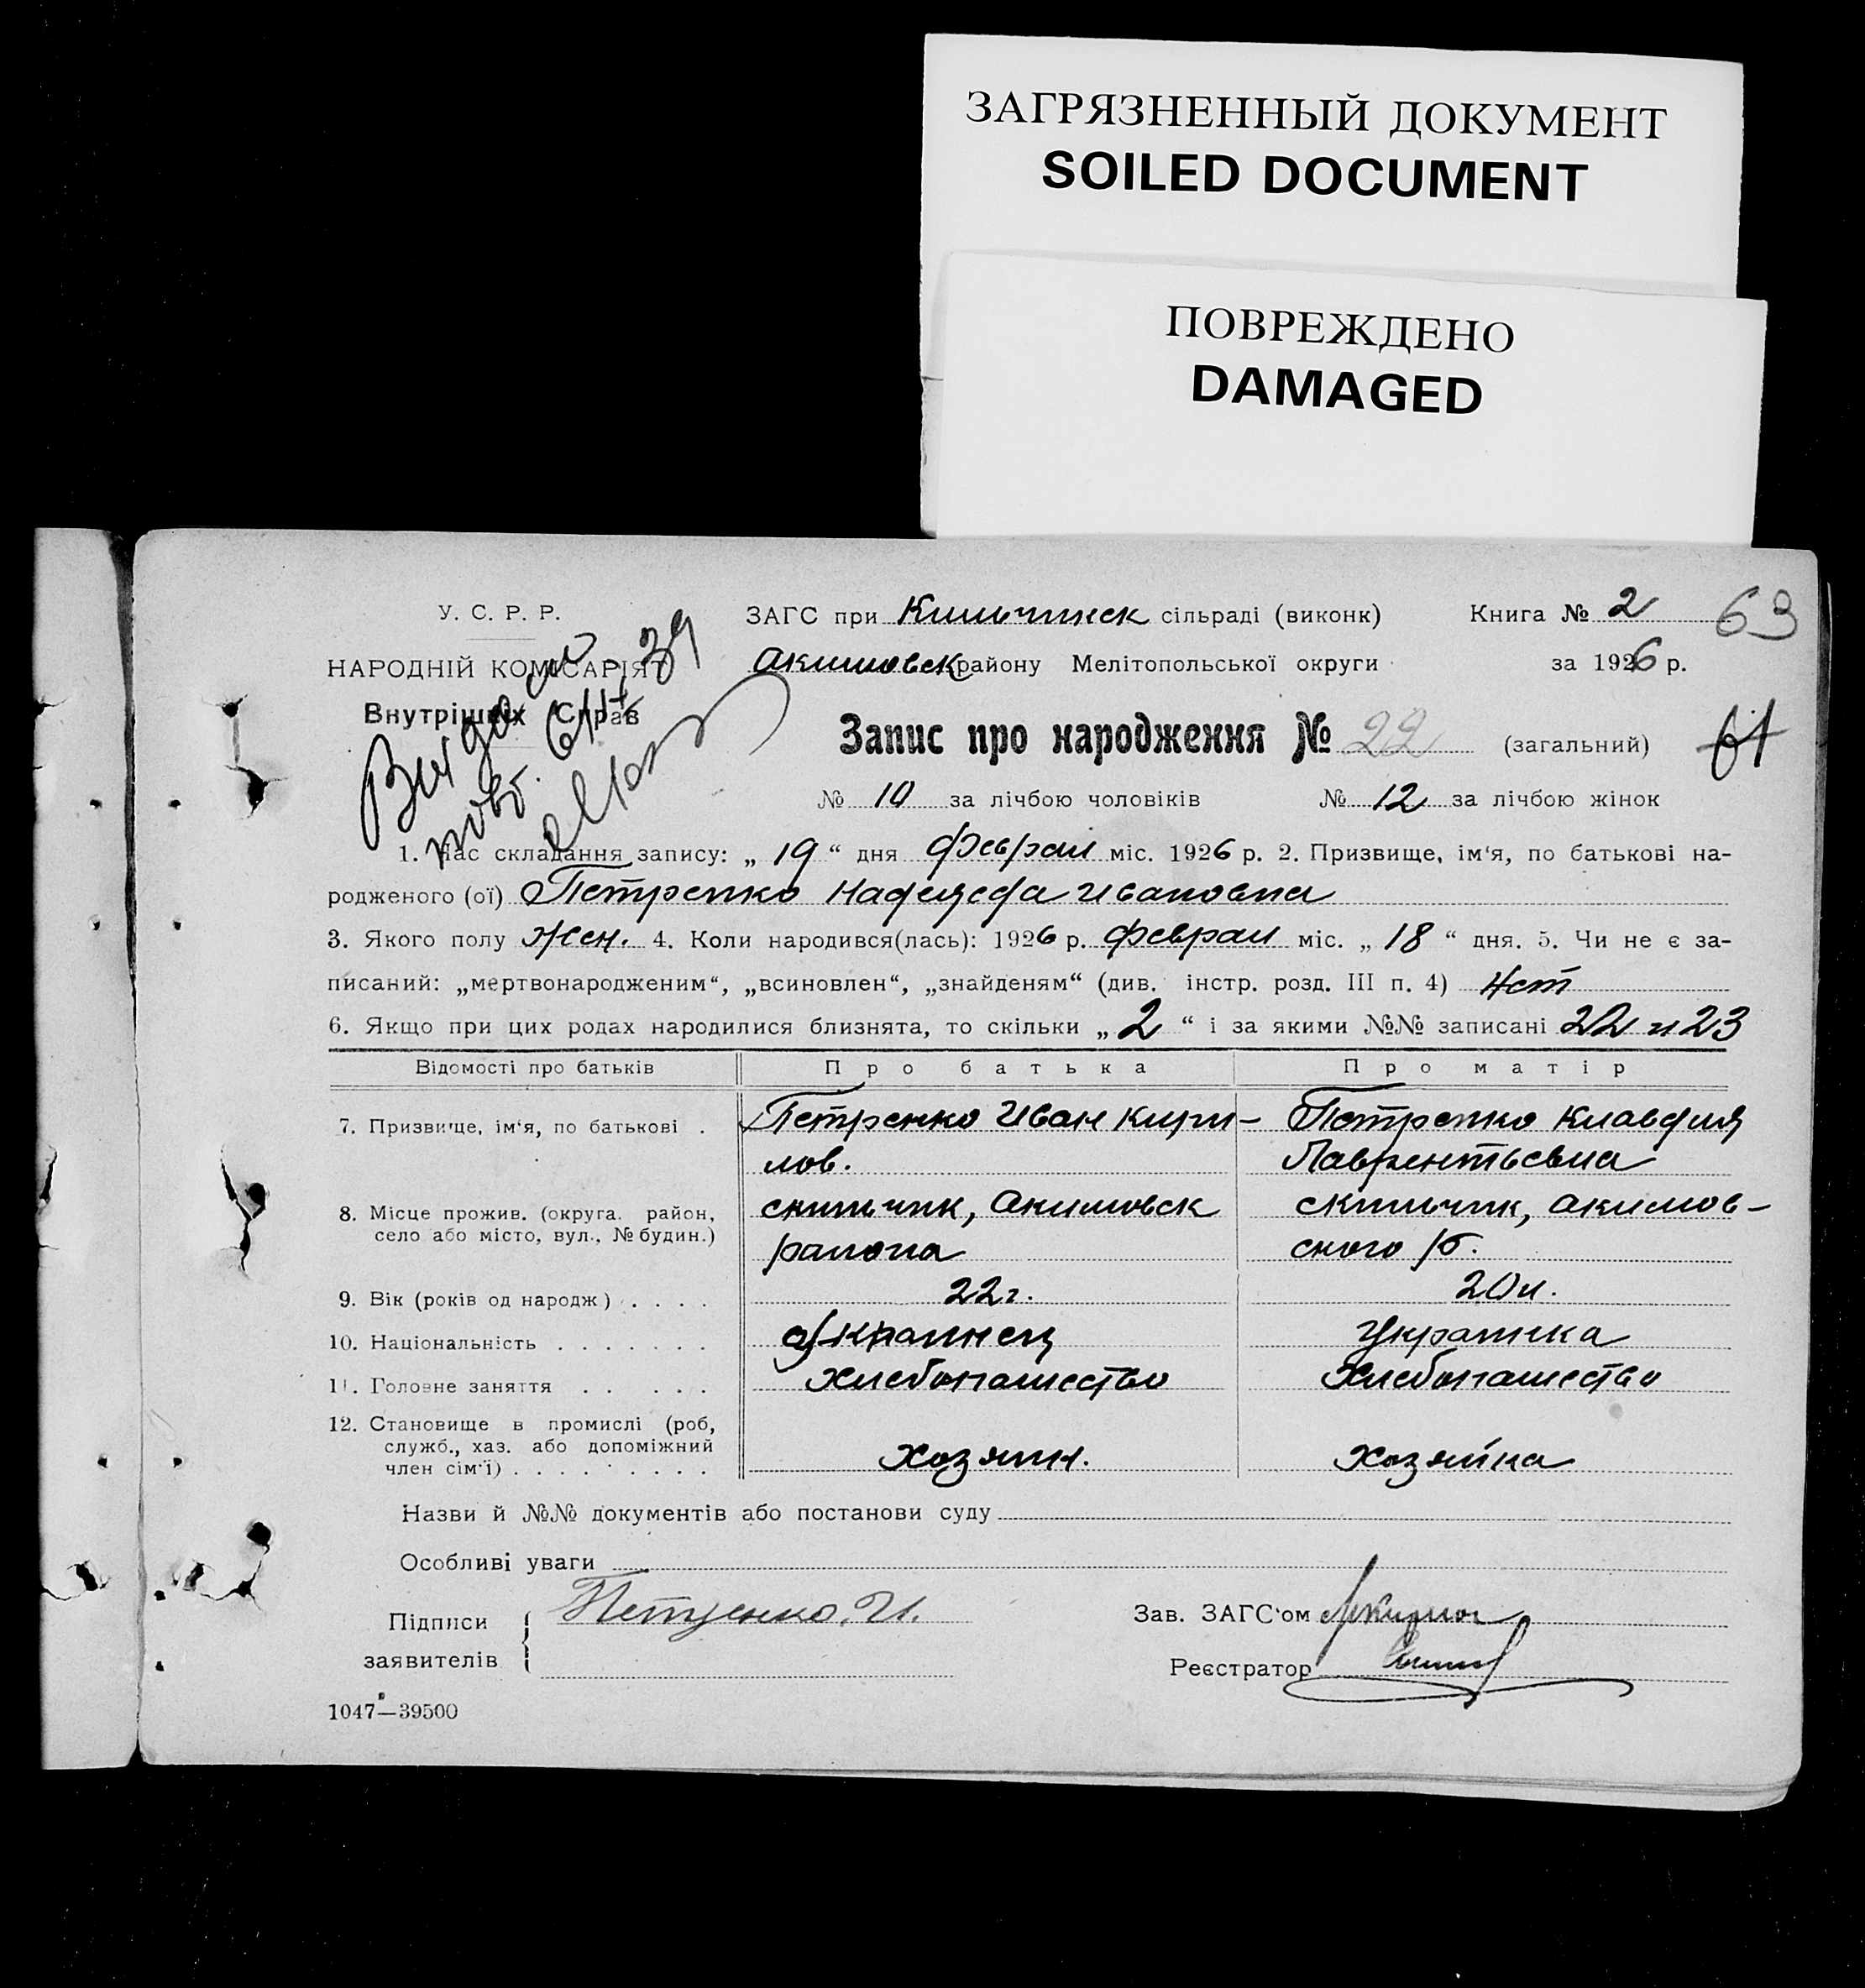 ЗАГРЯЗНЕННЫЙ ДОКУМЕНТ
SOILED DOCUMENT
ПОВРЕЖДЕНО
DAMAGED
У. С. Р. Р.
НАРОДНІЙ КОМІСАРІЯТ
Внутрішніх Справ
ЗАГС при сільраді (виконк) Книга № 2 63
Акимовск району Мелітопольської округи за 1926 р.
Запис про народження № 22 (загальний) 61
№ 10 за лічбою чоловіків № 12 за лічбою жінок
1. Час складання запису: „ 19 “ дня Феврал міс. 1926 р. 2. Призвище, ім'я, по батькові на-
родженого (ої) Петренко Надежда Ивановна
3. Якого полу Жен. 4. Коли народився(лась): 1926 р. Феврал міс. „ 18 “ дня. 5. Чи не є за-
писаний: „мертвонародженим“, „всиновлен“, „знайденям“ (див. інстр. розд. III п. 4) Нет
6. Якщо при цих родах народилися близнята, то скільки „ 2 “ і за якими №№ записані 22 и 23
Відомості про батьків Про батька Про матір
7. Призвище, ім'я, по батькові . Петренко Иван Кири- Петренко Клавдия
лов. Лаврентьевна
8. Місце прожив. (округа. район, Акимовск Акимов-
село або місто, вул., № будин.) района ского р.
9. Вік (років од народж) . . . . 22г. 20л.
10. Національність . . . . . . . Украинец Украинка
11. Головне заняття . . . . . Хлебопашество Хлебопашество
12. Становище в промислі (роб,
служб., хаз. або допоміжний
член сім'ї) . . . . . . . . . Хозяин. Хозяйка
Назви й №№ документів або постанови суду
Особливі уваги
Підписи
заявителів
Петренко. И.
Зав. ЗАГС'ом
Реєстратор
1047—39500
Выдано
повт. 6/IV 39